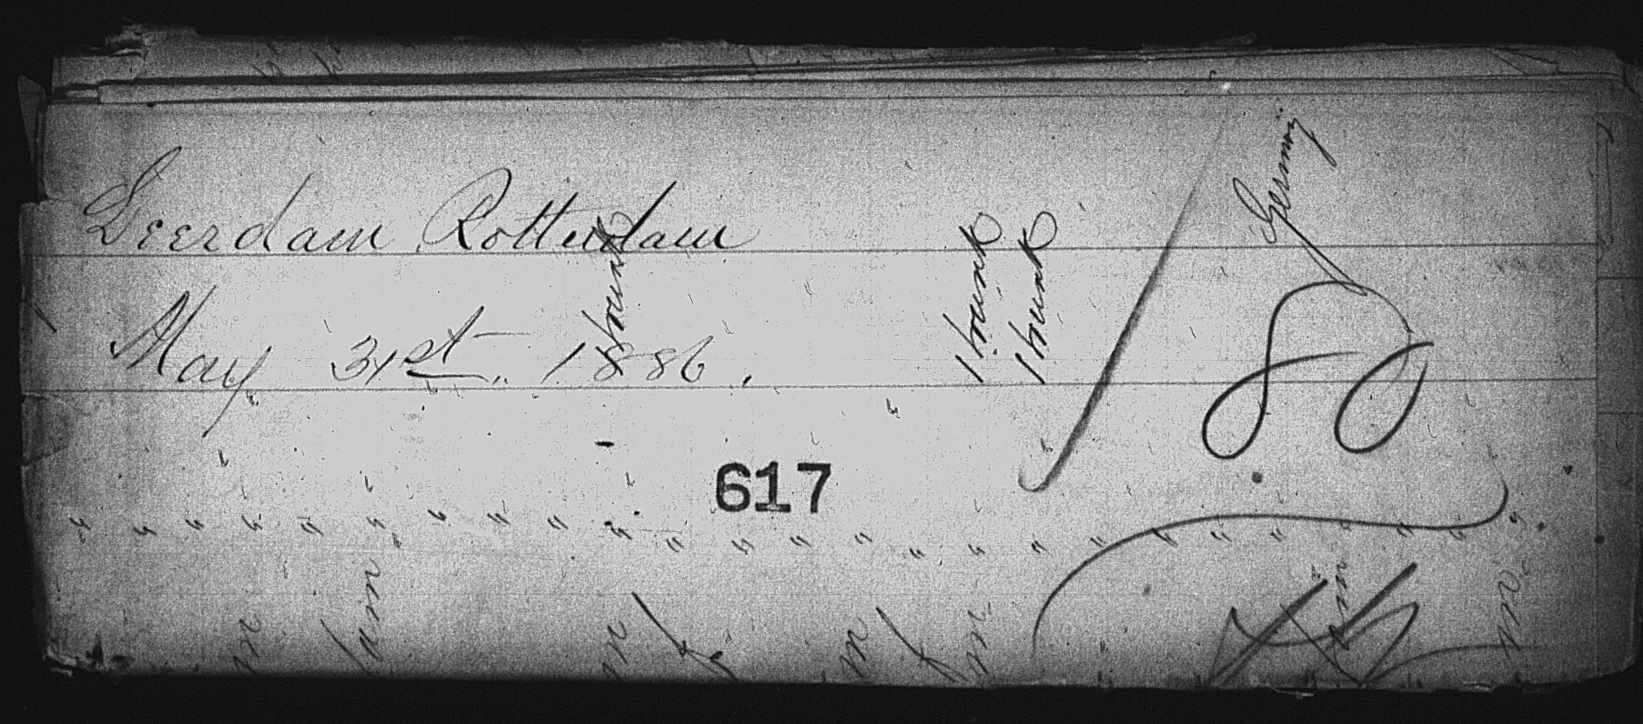 Leerdam Rotterdam
May 31st. 1886.
1 trunk
1 trunk
1 trunk
Germany
80
617